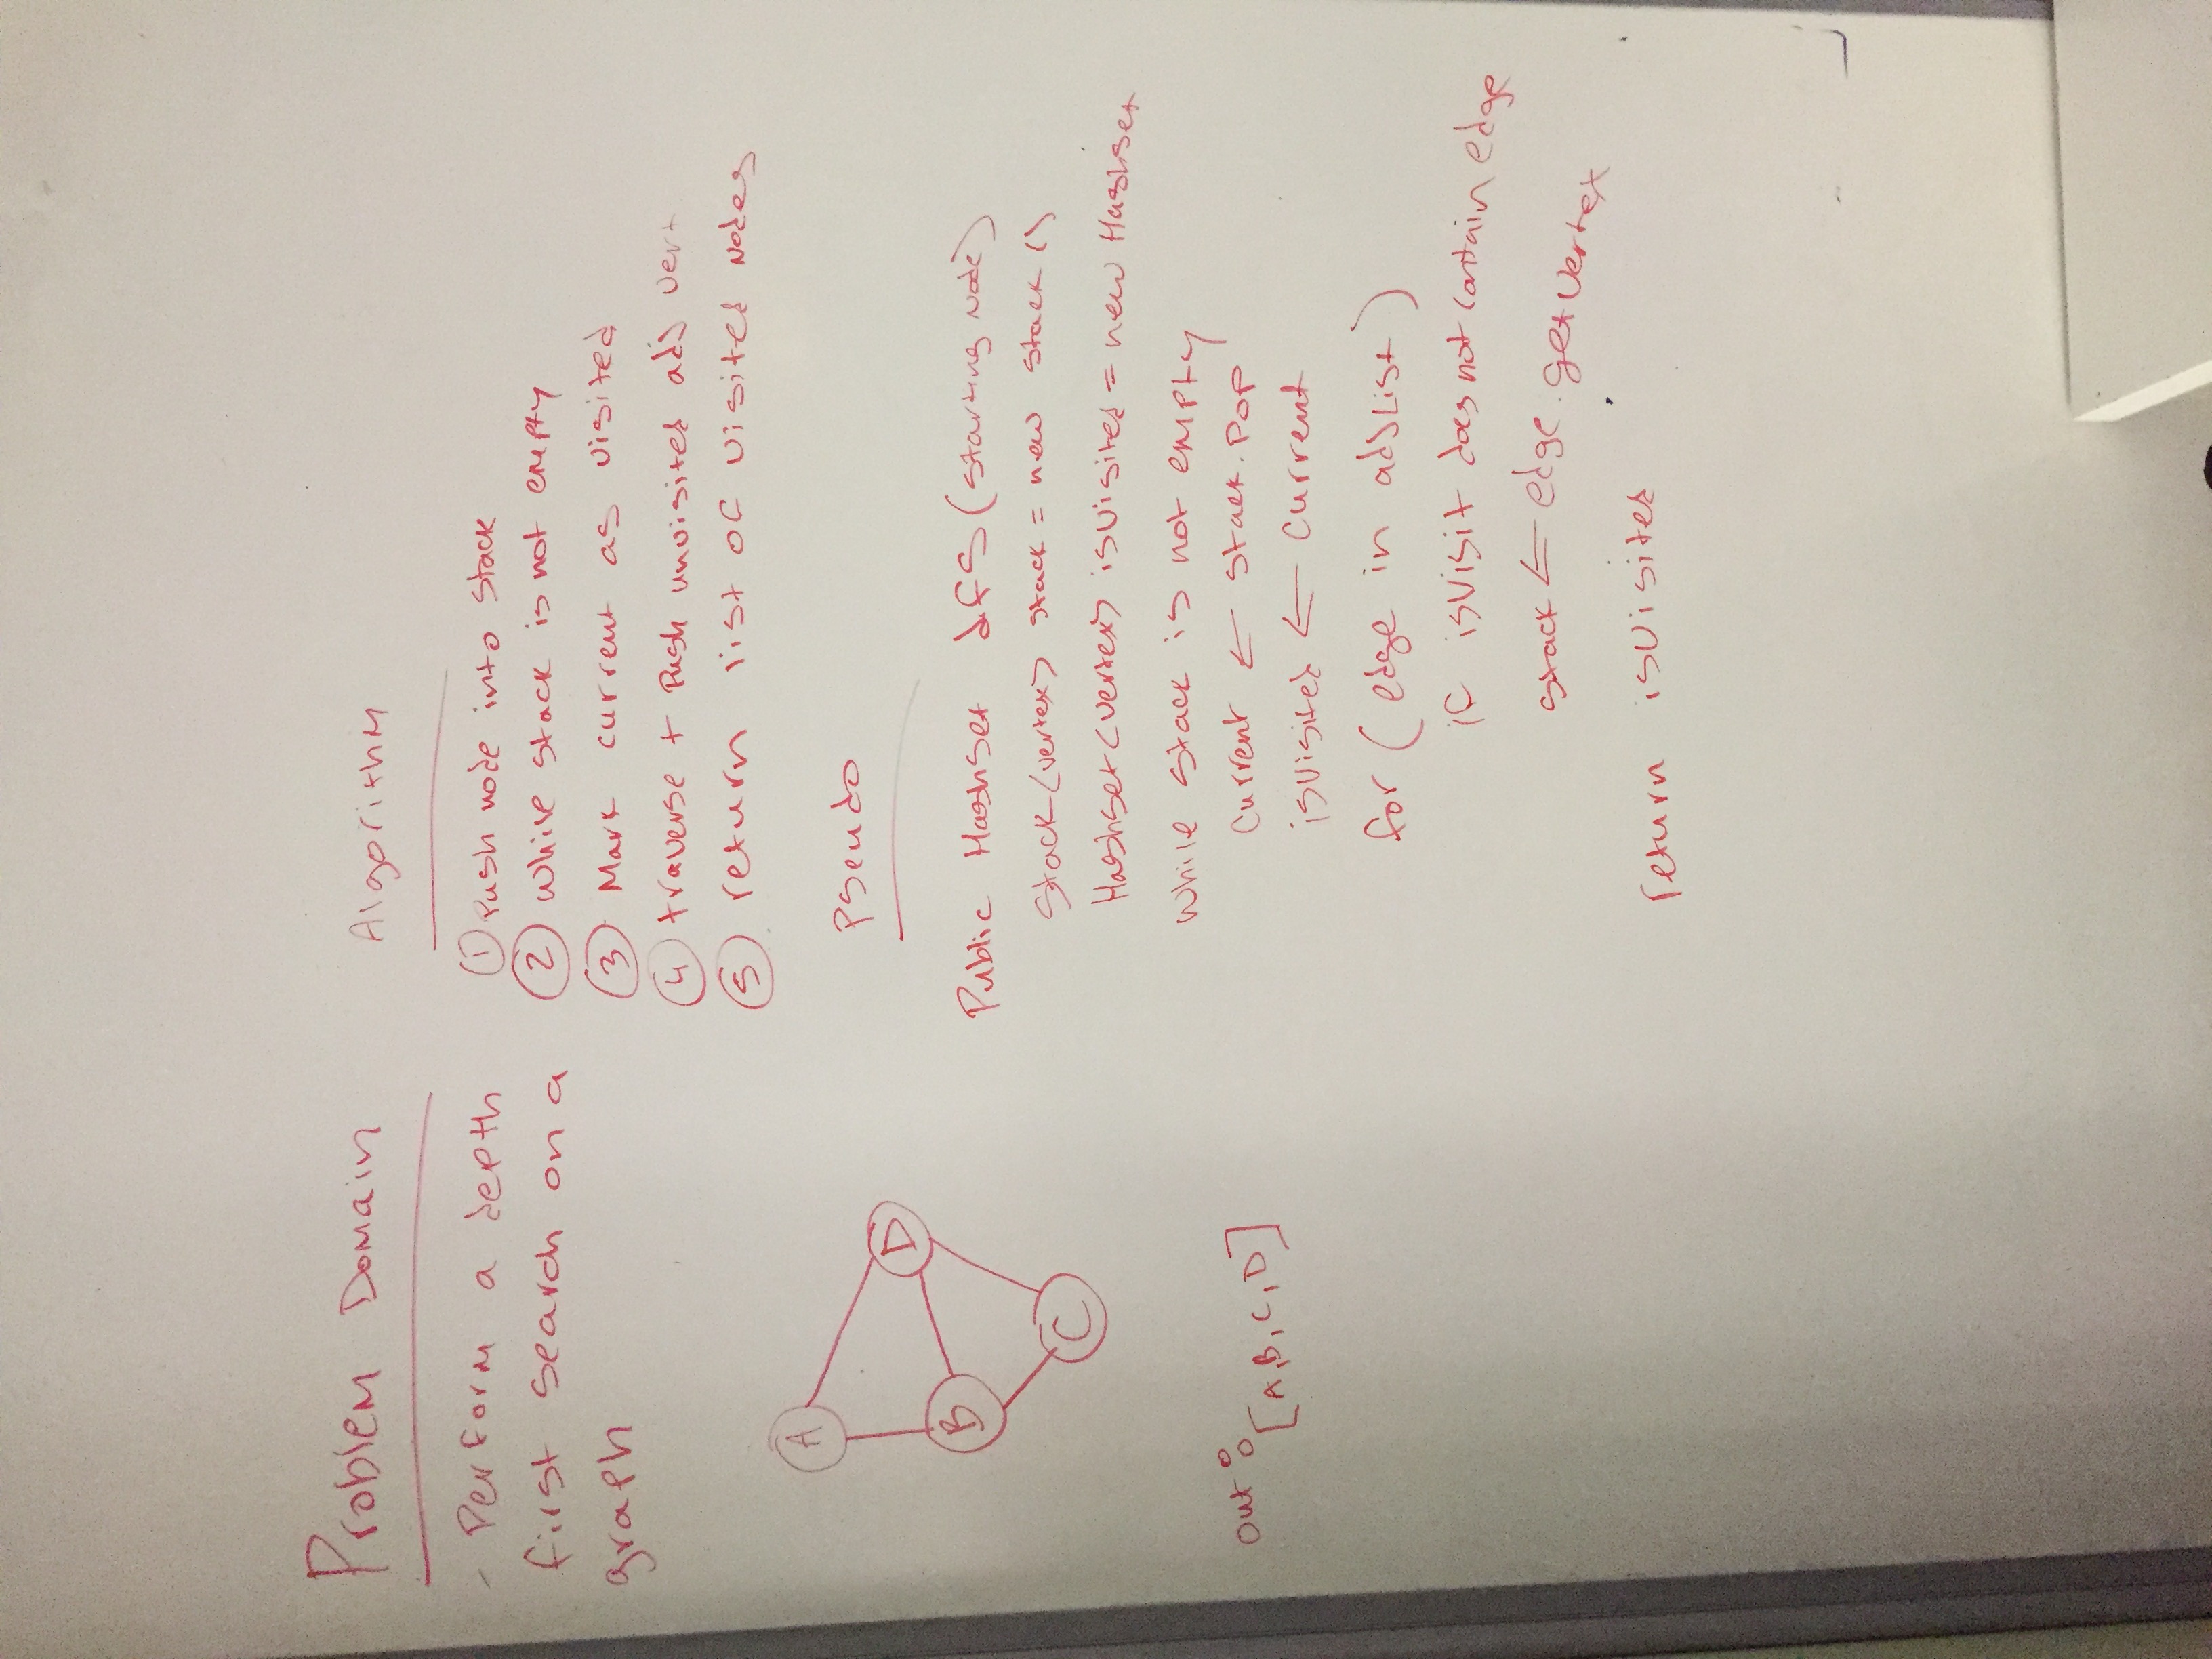 Problem Domain
- Perform a depth
first search on a
graph
A
D
B
C
out: [A, B, C, D]
Algorithm
① Push node into stack
② while stack is not empty
③ Mark current as visited
④ traverse + Push unvisited adj vert
⑤ return list of visited nodes
Pseudo
Public HashSet dfs (starting node)
Stack<vertex> stack = new stack ()
Hashset<vertex> isVisited = new Hashset
while stack is not empty
Current ← stack.Pop
isVisited ← Current
for (edge in adjList)
if isVisit does not contain edge
stack ← edge.getVertex
return isVisited